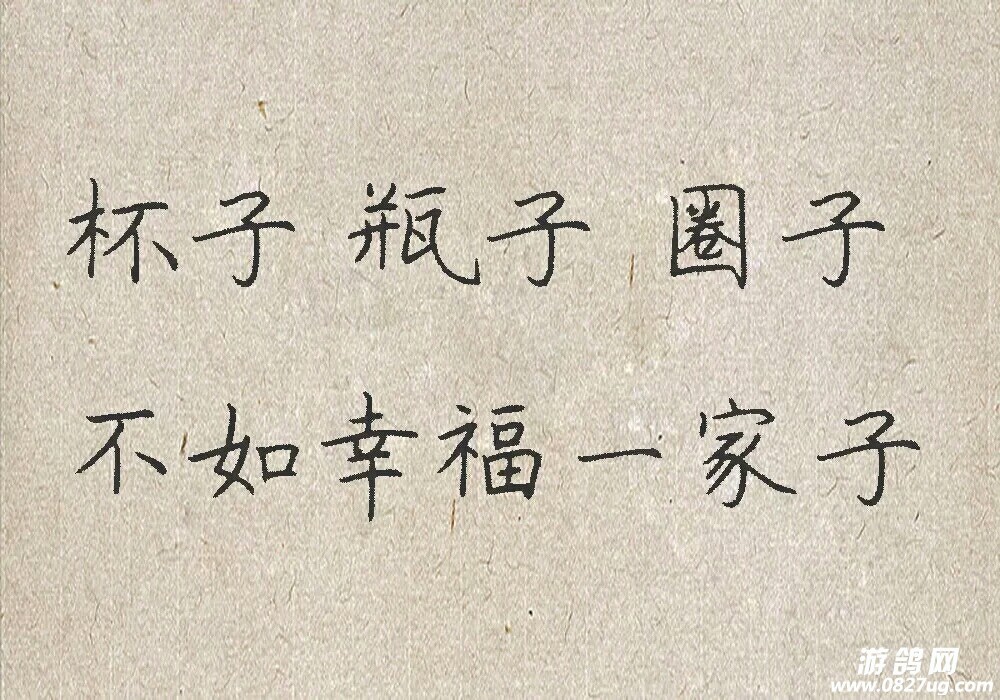 杯子 瓶子 圈子
不如幸福一家子
游鸽网
www.0827ug.com